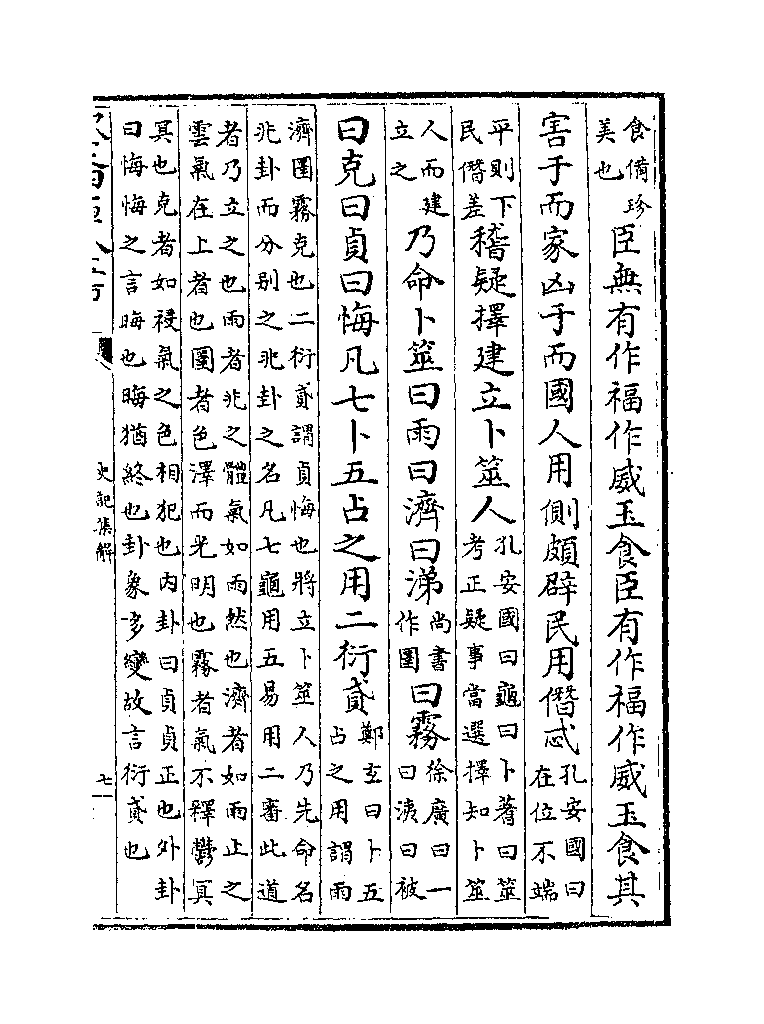 食備珍美也臣無有作福作威玉食臣有作福作威玉食其
害于而家凶于而國人用側頗辟民用僭忒孔安國曰在位不端
平則下民僭差稽疑擇建立卜筮人孔安國曰龜曰卜蓍曰筮考正疑事當選擇知卜筮
人而建立之乃命卜筮曰雨曰濟曰涕尚書作圛曰霧徐廣曰一曰洟曰被
曰克曰貞曰悔凡七卜五占之用二衍貣鄭玄曰卜五占之用謂雨
濟圛霧克也二衍貣謂貞悔也將立卜筮人乃先命名
兆卦而分别之兆卦之名凡七龜用五易用二審此道
者乃立之也雨者兆之體氣如雨然也濟者如雨止之
雲氣在上者也圛者色澤而光明也霧者氣不釋鬱冥
冥也克者如祲氣之色相犯也内卦曰貞貞正也外卦
曰悔悔之言晦也晦猶終也卦象多變故言衍貣也
史記集解
七